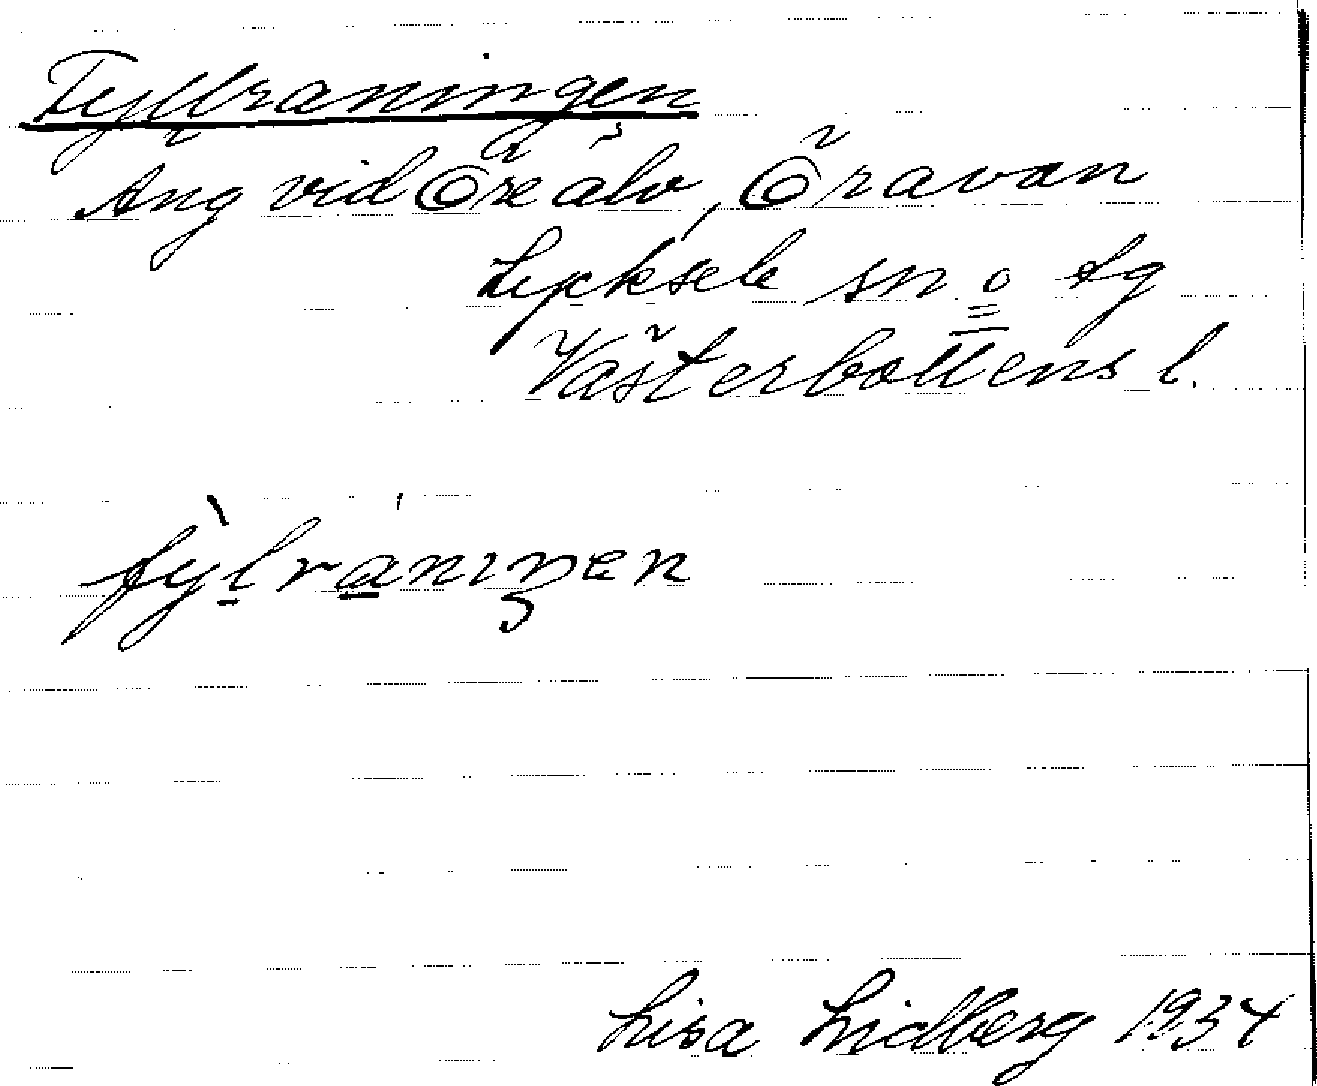 Fyllraningen
Äng vid Öre älv, Öravan
Lycksele sn o. Lg
Västerbottens l.
fy̆lraniŋen
Lisa Lidberg 1934